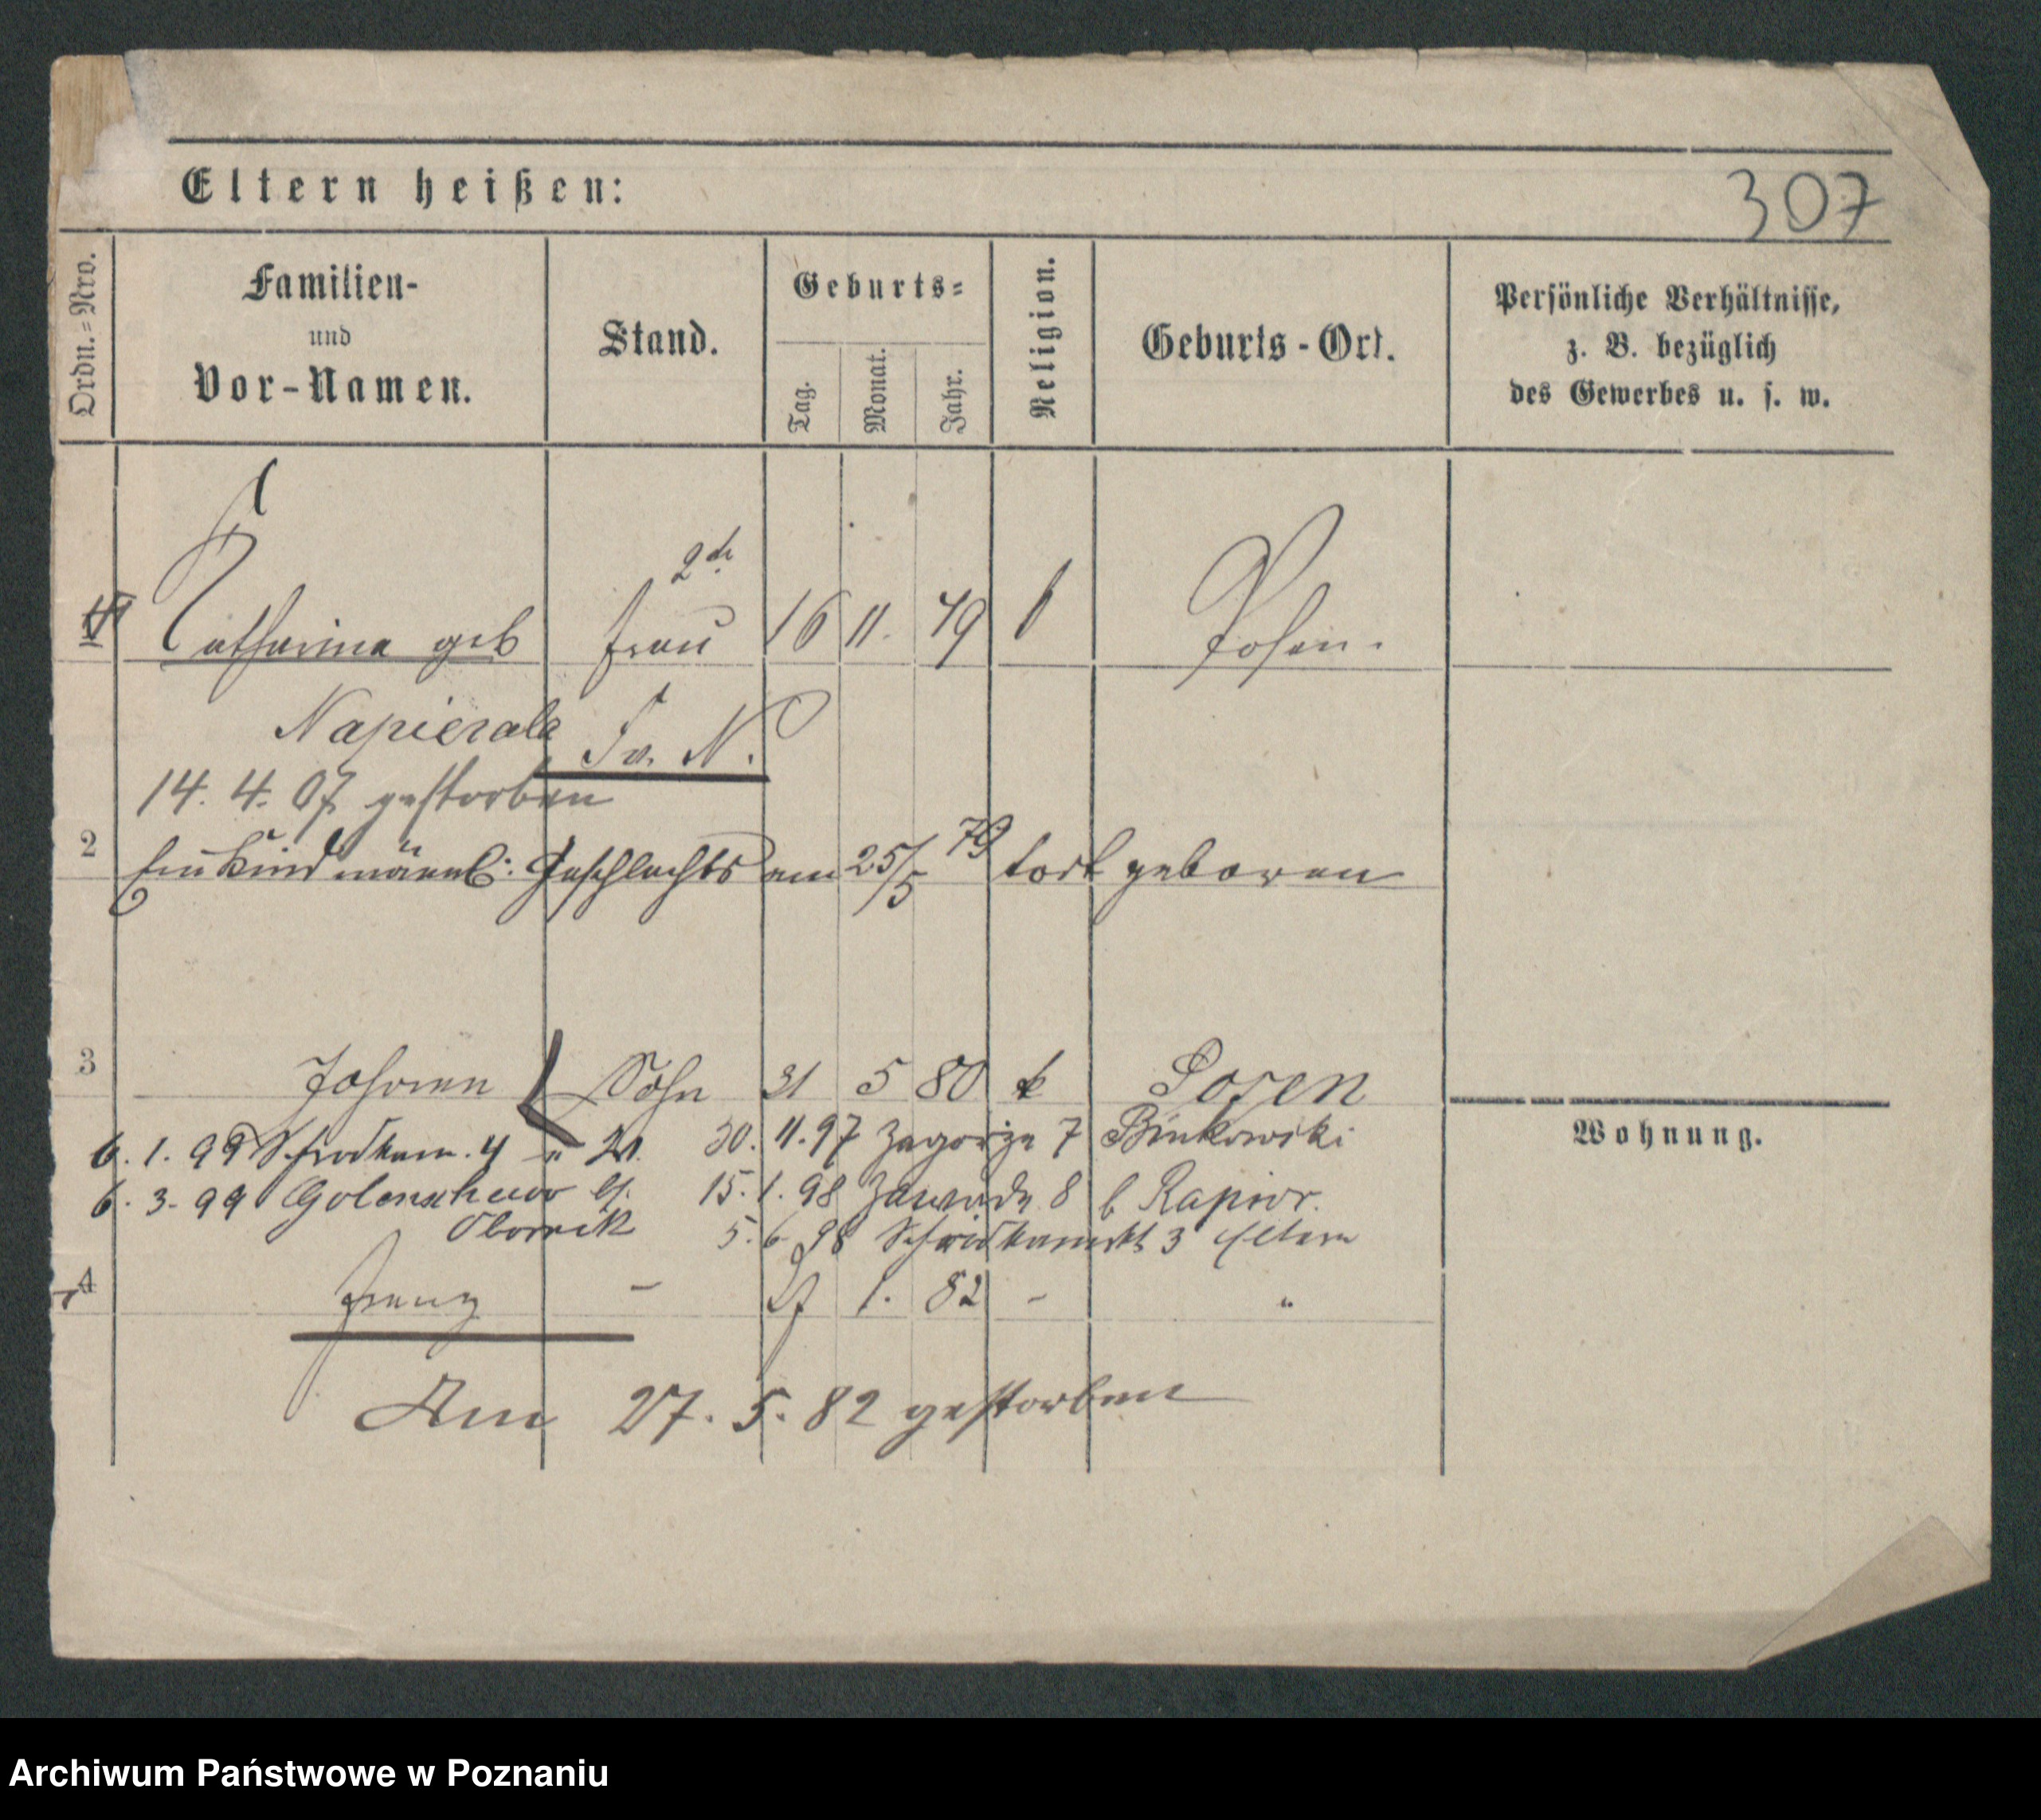 Eltern heißen:
307
Ordn.-Nro.
Familien-
und
Vor-Namen.
Stand.
Geburts-
Tag.
Monat.
Jahr.
Religion.
Geburts-Ort.
Persönliche Verhältnisse,
z. B. bezüglich
des Gewerbes u. s. w.
2te
Catharina geb Frau 16 11. 49 k Posen.
Napierala
14. 4. 07 gestorben
2 Ein Kind männl: Geschlechts am 25/5 79 todt geboren
3 Johann Sohn 21 5 80 k Posen
6. 1. 99 Schrodkam. 4 30. 11. 97 Zagorze 7 Binkowski
Wohnung.
6. 3. 99 Golenschewo 15. 1. 98 Zawade 8 b Rapior.
Obornik 5. 6 98 Schrodkamrkt 3 Eltern
4 Franz - 1. 82 - "
Am 27. 5. 82 gestorben
Archiwum Państwowe w Poznaniu